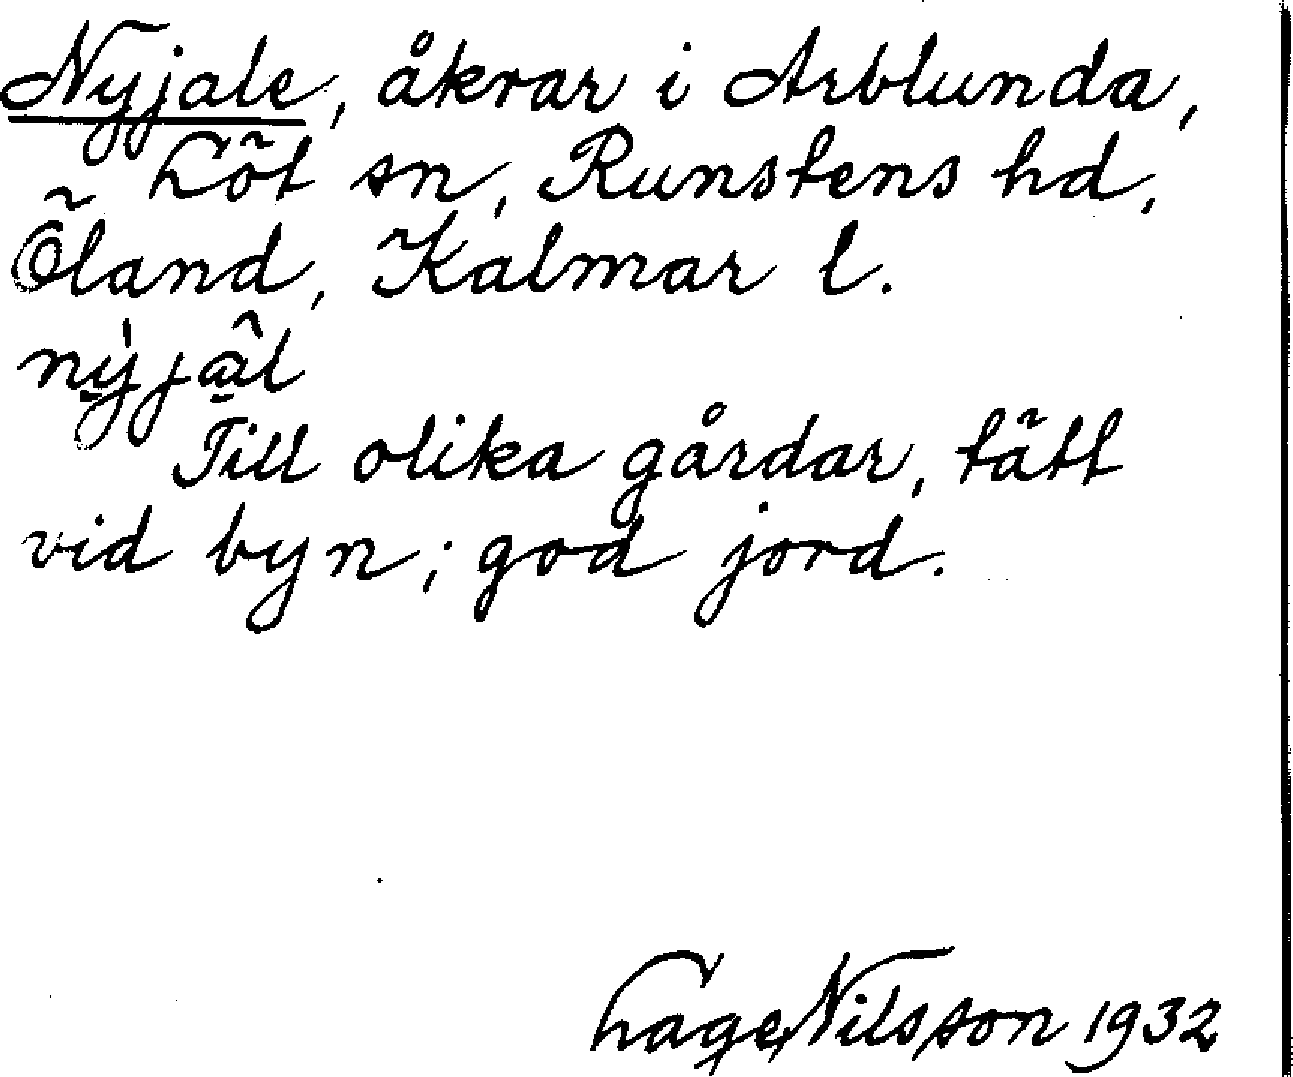 Nyjale, åkrar i Arblunda,
Löt sn, Runstens hd,
Öland, Kalmar l.
nỳ̱jâ̱l
Till olika gårdar, tätt
vid byn; god jord.
Lage Nilsson 1932